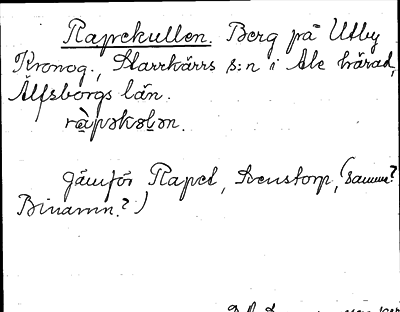 Rapekullen. Berg på Utby
Kronog., Starrkärrs s:n i Ale härad,
Älfsborgs län.
ràpəkələn.
Jämför Rapet, Svenstorp, (samma?
Binamn?)